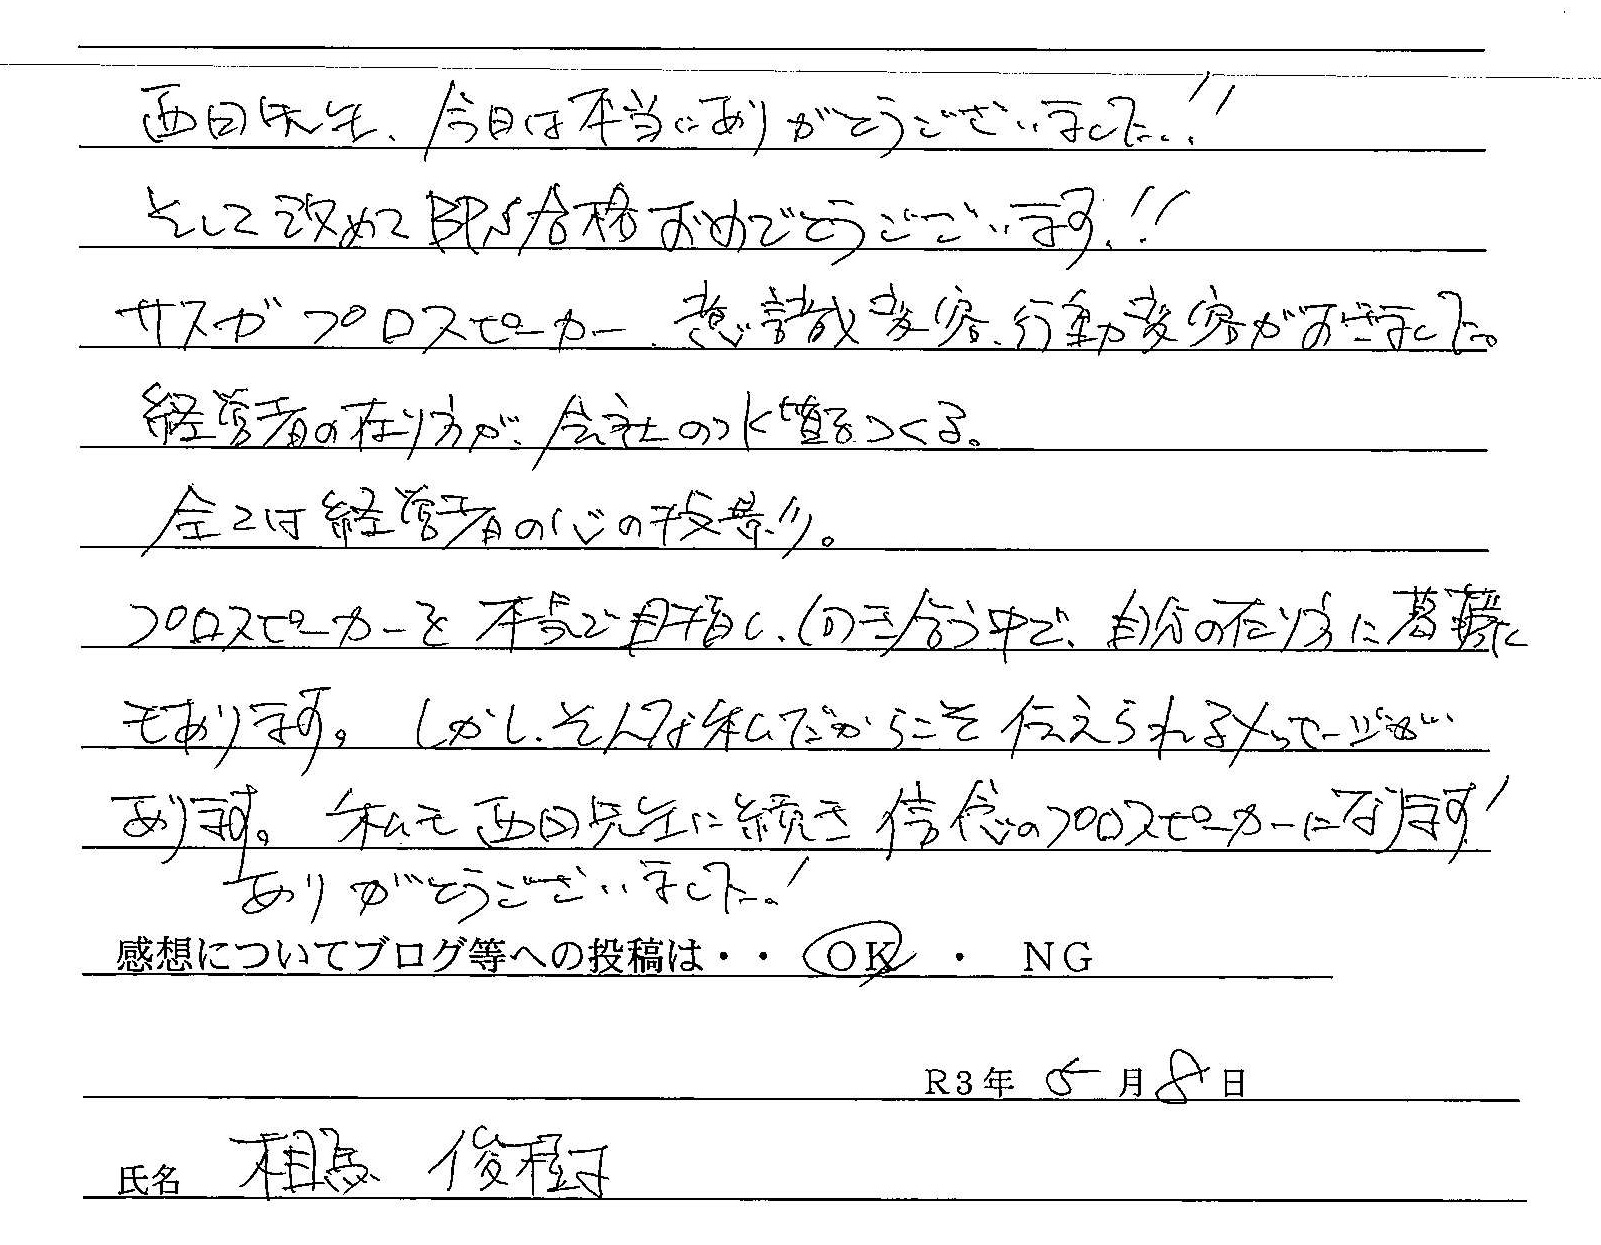 西田先生、今日は本当にありがとうございました!!
そして改めてBPS合格おめでとうございます!!
サスガプロスピーカー、意識変容、行動変容がおきました。
経営者の在り方が、会社の水質をつくる。
全ては経営者の心の投影。
プロスピーカーを本気で目指し、向き合う中で、自分の在り方に葛藤
もあります。しかし、そんな私だからこそ伝えられるメッセージが
あります。私も西田先生に続き信念のプロスピーカーになります!
ありがとうございました!
感想についてブログ等への投稿は・・ OK ・ NG
R3年 5月8日
氏名 相馬 俊樹